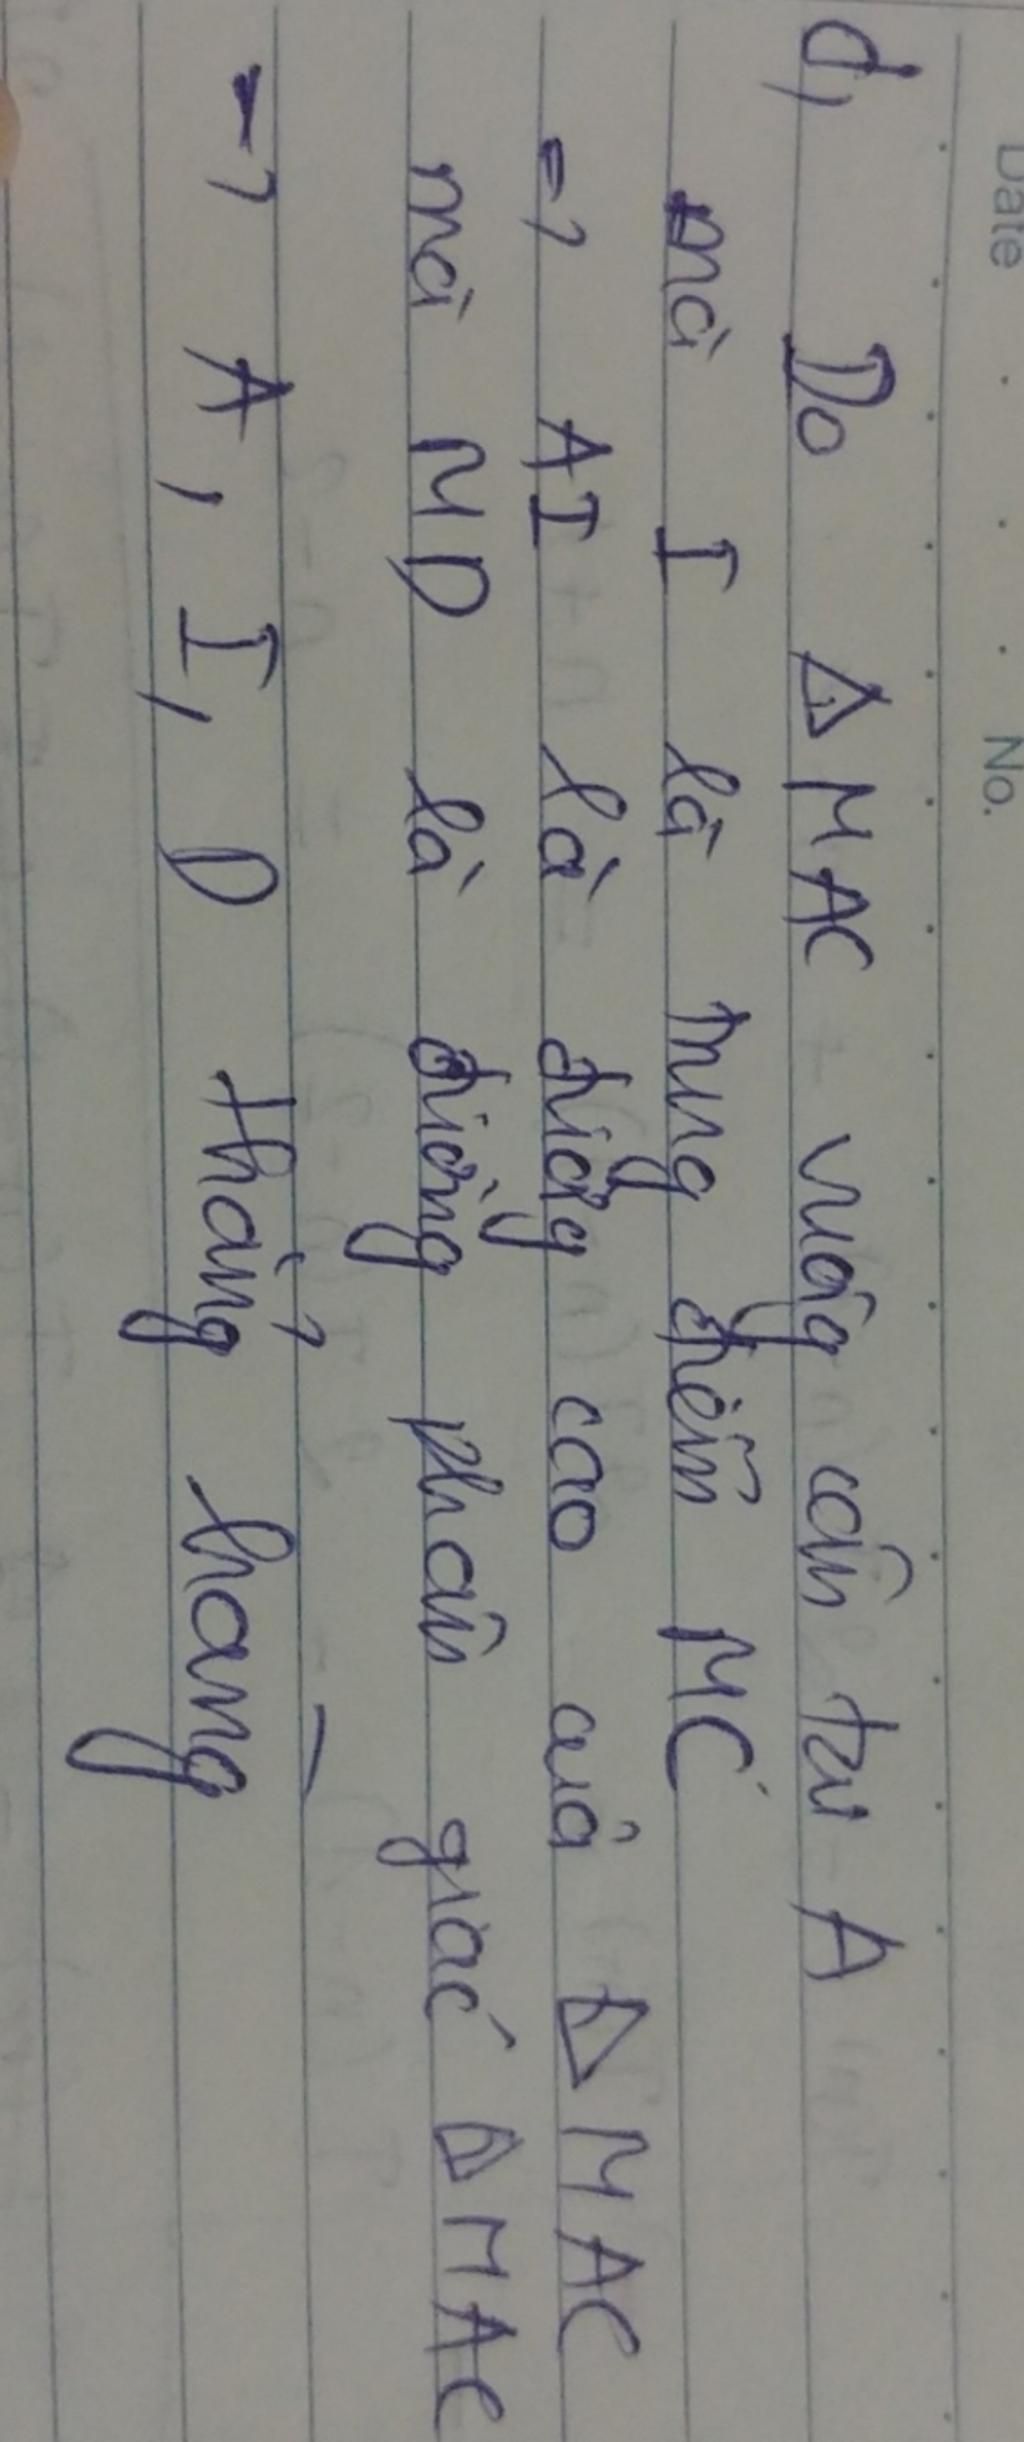 Date No.
d, Do Δ MAC vuông cân tại A
mà I là trung điểm MC
=> AI là đường cao của Δ MAC
mà MD là đường phân giác Δ MAC
=> A, I, D thẳng hàng